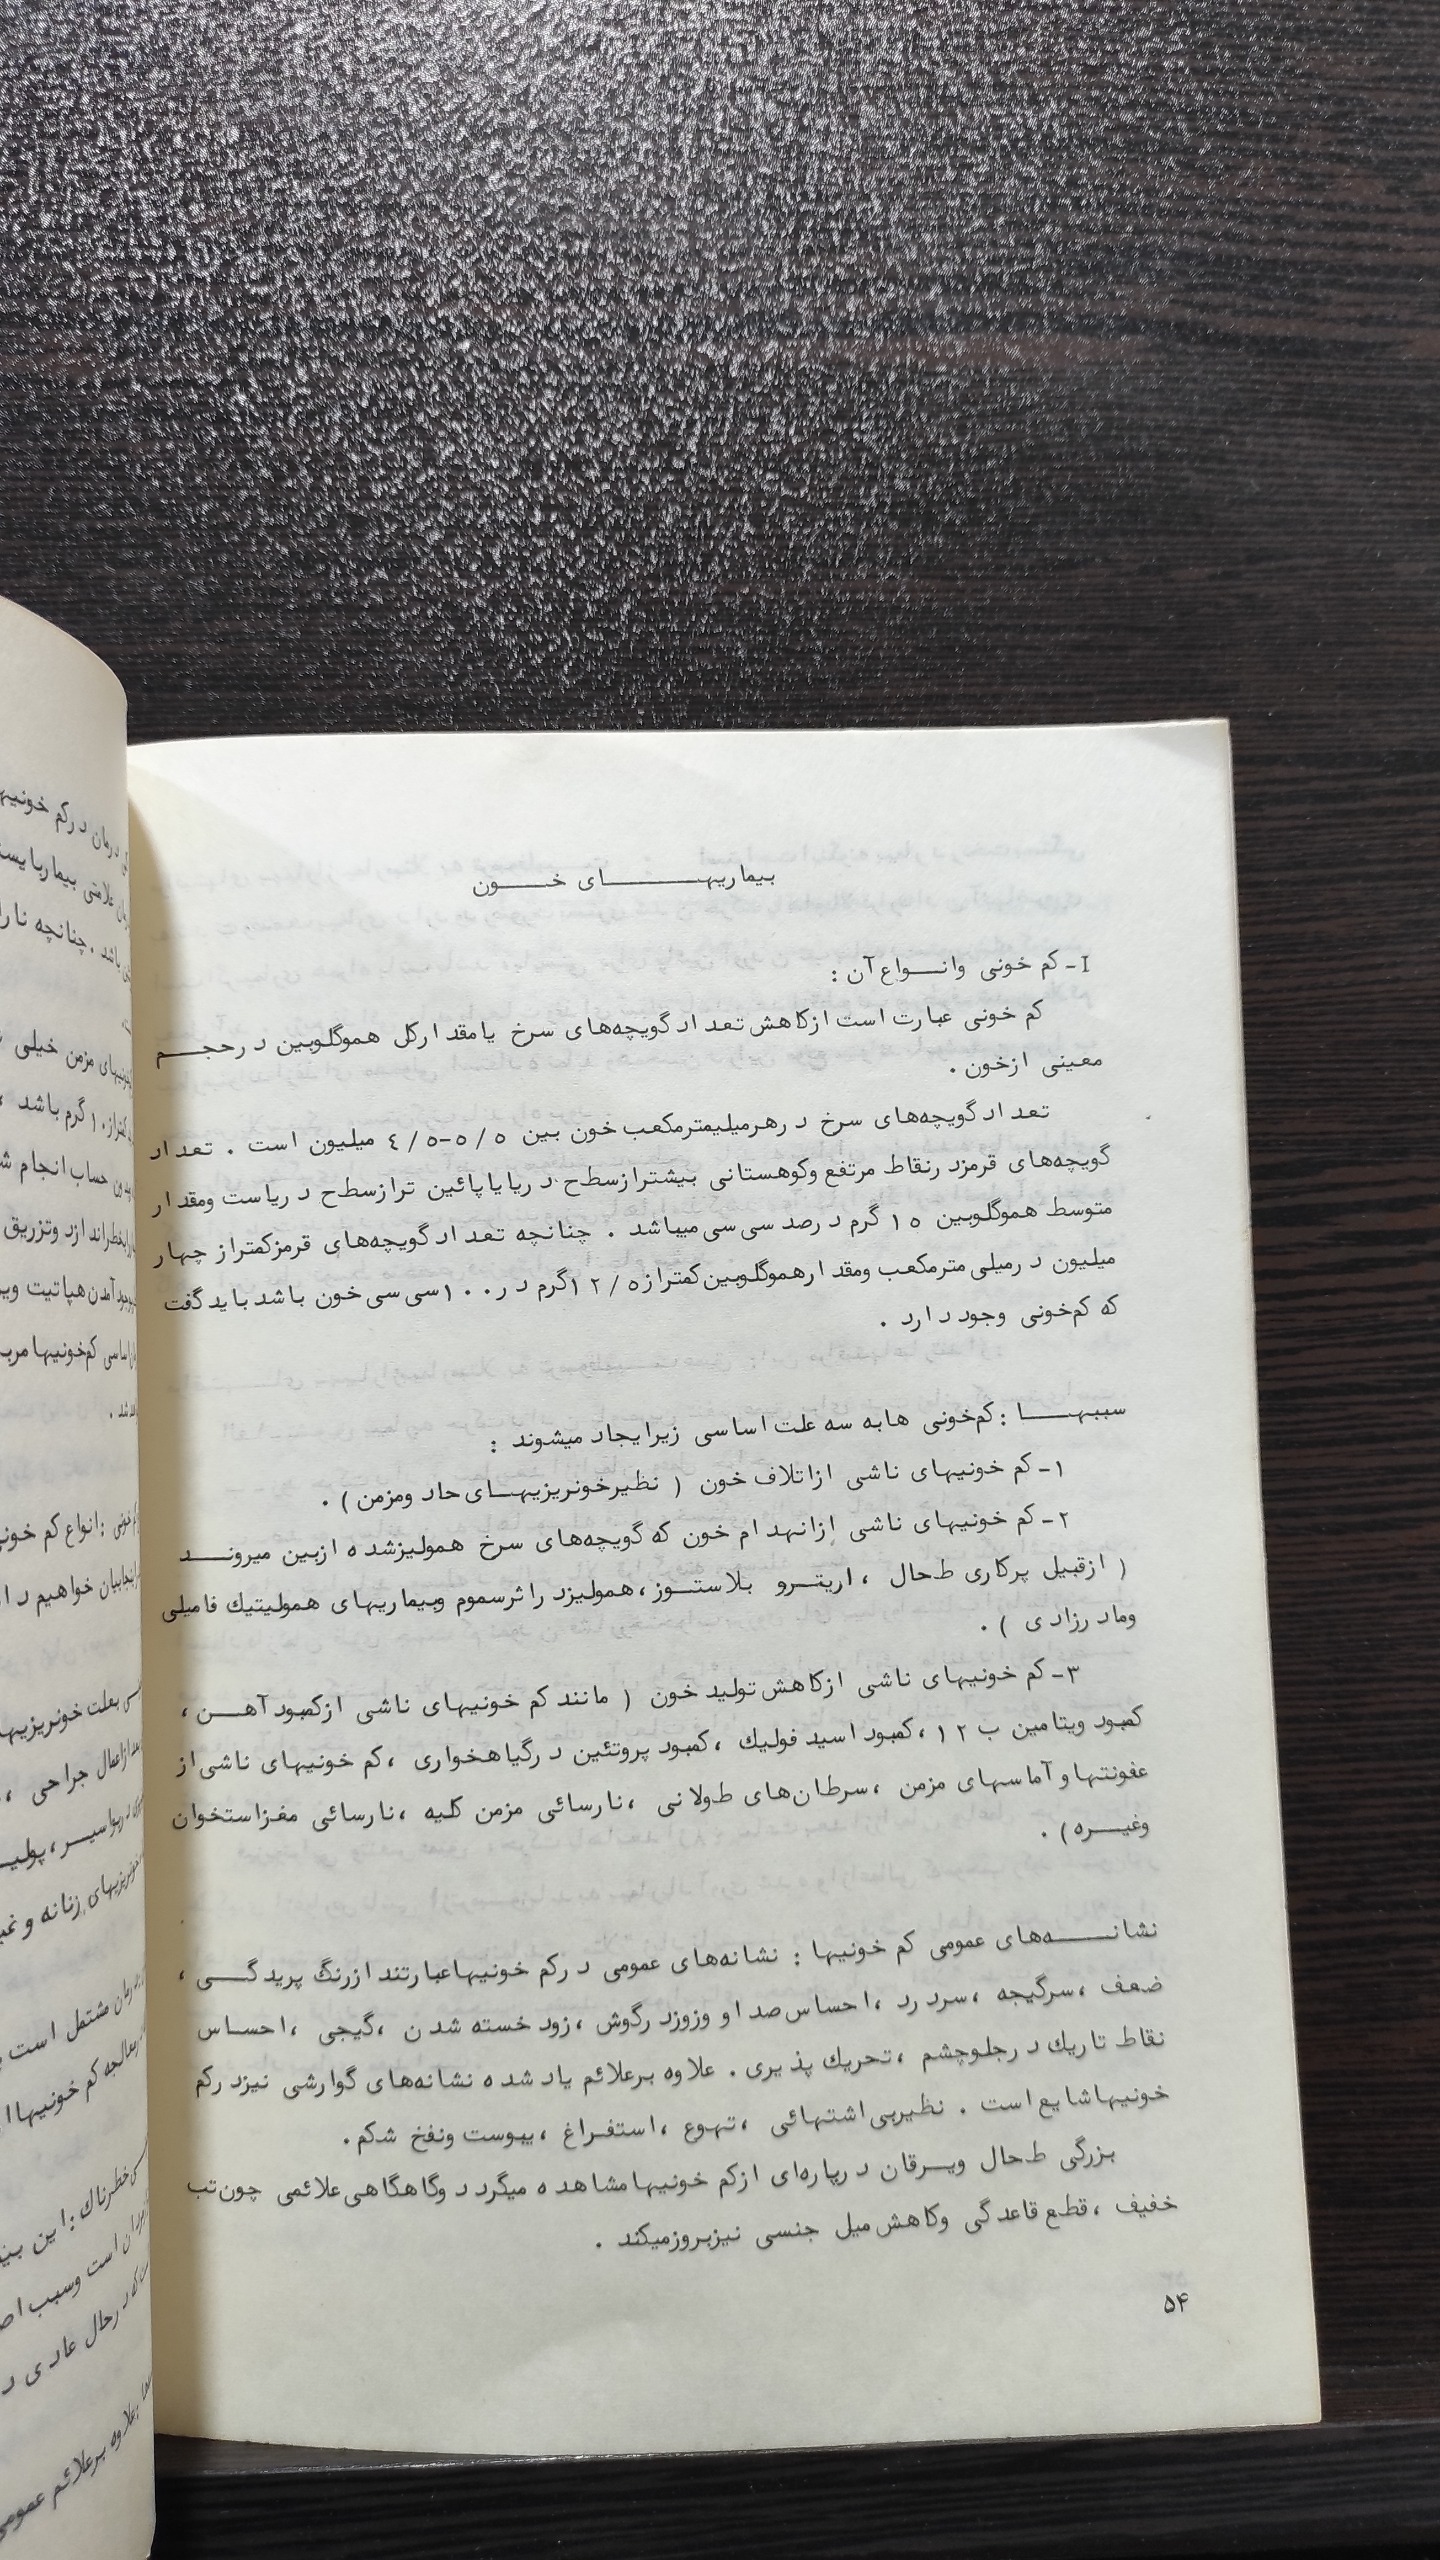 بیماریهـــــای خـــون
I- کم خونی وانـــواع آن :
کم خونی عبارت است ازکاهش تعداد گویچه‌های سرخ یا مقدار کل هموگلوبین درحجـــم
معینی ازخون .
تعداد گویچه‌های سرخ درهرمیلیمترمکعب خون بین ۵/۵-۴/۵ میلیون است . تعداد
گویچه‌های قرمز درنقاط مرتفع وکوهستانی بیشترازسطح دریا یا پائین ترازسطح دریاست ومقدار
متوسط هموگلوبین ۱۵ گرم درصد سی سی میباشد . چنانچه تعداد گویچه‌های قرمزکمتراز چهار
میلیون درمیلی مترمکعب ومقدار هموگلوبین کمتراز ۱۲/۵ گرم در ۱۰۰ سی سی خون باشد باید گفت
که کم‌خونی وجود دارد .
سببهـــا : کم‌خونی ها به سه علت اساسی زیرایجاد میشوند :
۱- کم خونیهای ناشی ازاتلاف خون ( نظیرخونریزیهــای حاد ومزمن ) .
۲- کم خونیهای ناشی ازانهدام خون که گویچه‌های سرخ همولیزشده ازبین میرونـــد
( ازقبیل پرکاری طحال ، اریتـــرو بلاستــوز ، همولیزدراثرسموم وبیماریهای همولیتیك فامیلی
ومادرزادی ) .
۳- کم خونیهای ناشی ازکاهش تولید خون ( مانند کم خونیهای ناشی ازکمبود آهـــن ،
کمبود ویتامین ب ۱۲ ، کمبود اسید فولیك ، کمبود پروتئین درگیاهخواری ، کم خونیهای ناشی از
عفونتها و آماسهای مزمن ، سرطان‌های طولانی ، نارسائی مزمن کلیه ، نارسائی مغزاستخوان
وغیـــره ) .
نشانـــه‌های عمومی کم خونیها : نشانه‌های عمومی درکم خونیها عبارتند ازرنگ پریدگـــی ،
ضعف ، سرگیجه ، سردرد ، احساس صدا و وزوزدرگوش ، زود خسته شدن ، گیجی ، احساس
نقاط تاریك درجلوچشم ، تحریك پذیری . علاوه برعلائم یاد شده نشانه‌های گوارشی نیزدرکم
خونیها شایع است . نظیربی اشتهائی ، تهوع ، استفراغ ، یبوست ونفخ شکم .
بزرگی طحال ویـــرقان درپاره‌ای ازکم خونیها مشاهده میگردد وگاهگاهی علائمی چون تب
خفیف ، قطع قاعدگی وکاهش میل جنسی نیزبروزمیکند .
۵۴